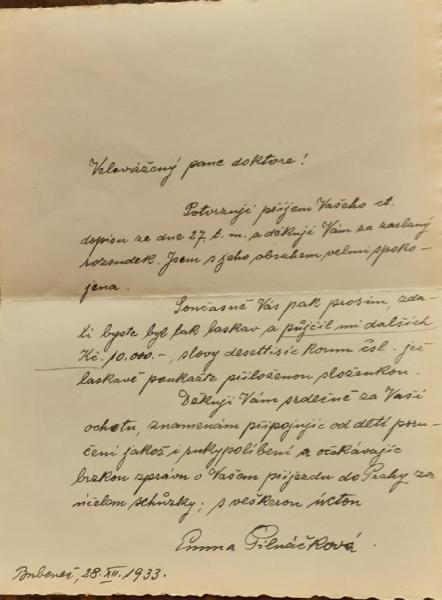 Velevážený pane doktore!
Potvrzuji příjem Vašeho ct.
dopisu ze dne 27. t. m. a děkuji Vám za zaslaný
rozsudek. Jsem s jeho obsahem velmi spoko-
jena.
Současně Vás pak prosím, zda-
li byste byl tak laskav a půjčil mi dalších
Kč. 10.000.-, slovy desettisíc korun čsl. jež
laskavě poukažte přiloženou složenkou.
Děkuji Vám srdečně za Vaši
ochotu, znamenám připojujíc od dětí poru-
čení jakož i rukypolíbení a očekávajíc
brzkou zprávu o Vašem příjezdu do Prahy za
účelem schůzky; s veškerou úctou
Emma Pilnáčková.
Bubeneč, 28. XII. 1933.